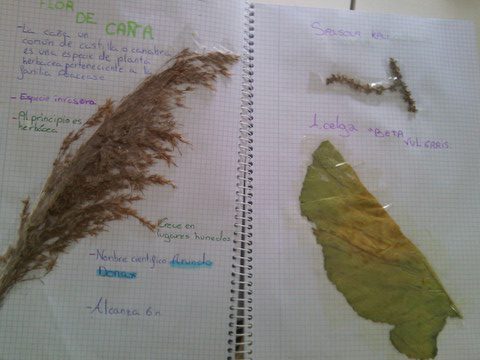 FLOR
DE CAÑA
-La caña un
común de castilla o canabra
es una especie de planta
herbácea perteneciente a la
familia
- Especie invasora
- Al principio es
herbácea
Crece en
lugares húmedos
- Nombre científico Arundo
Donax
- Alcanza 6 m
SALSOLA KALI
Acelga = BETA
VULGARIS